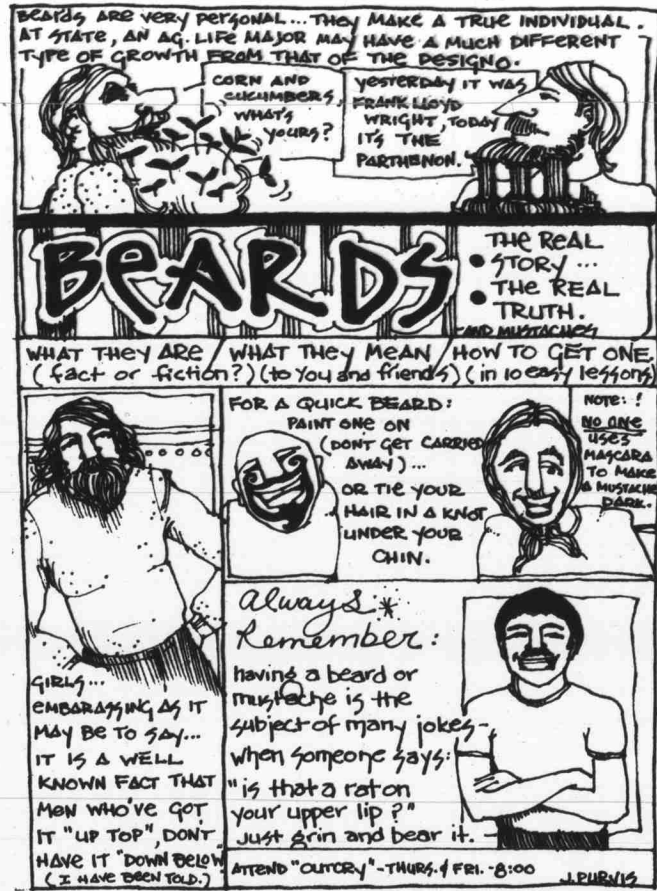 BEARDS ARE VERY PERSONAL... THEY MAKE A TRUE INDIVIDUAL.
AT STATE, AN AG. LIFE MAJOR MAY HAVE A MUCH DIFFERENT
TYPE OF GROWTH FROM THAT OF THE DESIGNO.
CORN AND
CUCUMBERS,
WHAT'S
YOURS?
YESTERDAY IT WAS
FRANK LLOYD
WRIGHT, TODAY
IT'S THE
PARTHENON.
BEARDS
• THE REAL
STORY...
• THE REAL
TRUTH.
AND MUSTACHES
WHAT THEY ARE / WHAT THEY MEAN / HOW TO GET ONE.
(fact or fiction?) (to you and friends) (in 10 easy lessons)
FOR A QUICK BEARD:
PAINT ONE ON
(DONT GET CARRIED
AWAY)...
OR TIE YOUR
HAIR IN A KNOT
UNDER YOUR
CHIN.
NOTE: !
NO ONE
USES
MASCARA
TO MAKE
A MUSTACHE
DARK.
GIRLS...
EMBARASSING AS IT
MAY BE TO SAY...
IT IS A WELL
KNOWN FACT THAT
MEN WHO'VE GOT
IT "UP TOP", DON'T
HAVE IT "DOWN BELOW
(I HAVE BEEN TOLD.)
always *
Remember:
having a beard or
mustache is the
subject of many jokes-
when someone says:
"is that a rat on
your upper lip?"
Just grin and bear it.
ATTEND "OUTCRY" - THURS. & FRI. - 8:00
J. PURVIS